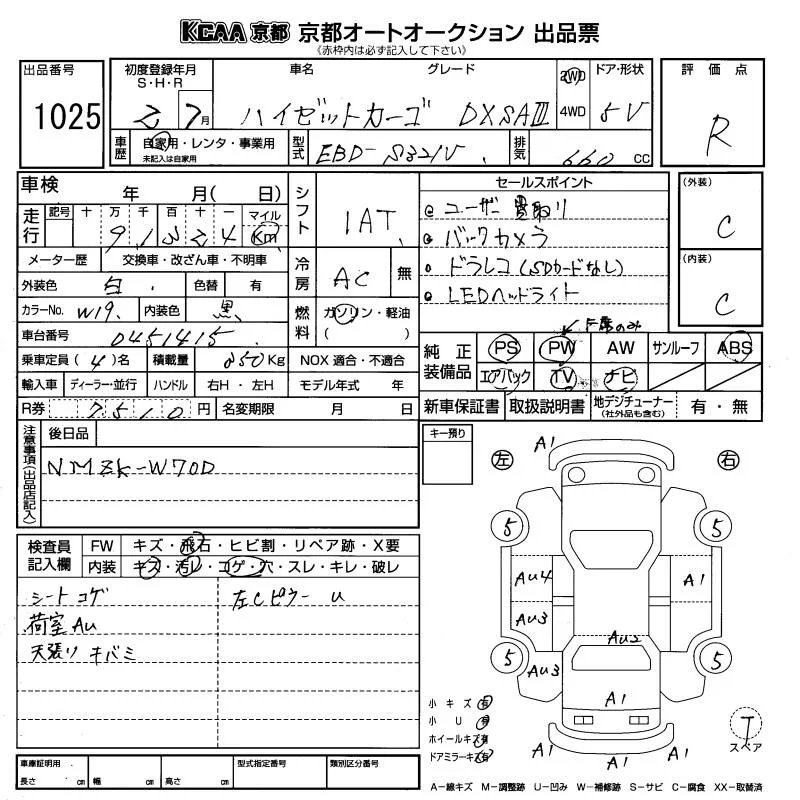 KCAA 京都 京都オートオークション 出品票
(赤枠内は必ず記入して下さい)
出品番号
1025
初度登録年月
S・H・R
2 7月
車名 グレード
ハイゼットカーゴ DXSAⅢ
2WD
4WD
ドア・形状
5V
評価点
R
車歴
自家用・レンタ・事業用
未記入は自家用
型式
EBD-S321V
排気
660 cc
車検 年 月( 日)
走行
記号 十 万 千 百 十 一 マイル
9 1 5 2 4 km
メーター歴 交換車・改ざん車・不明車
外装色 白 色替 有
カラーNo. W19 内装色 黒
車台番号 0451415
乗車定員 (4)名 積載量 350Kg
輸入車 ディーラー・並行 ハンドル 右H・左H
R券 7510円 名変期限 月 日
シフト 1AT
冷房 AC 無
燃料 ガソリン・軽油
( )
NOX 適合・不適合
モデル年式 年
セールスポイント
ユーザー買取り
バックカメラ
ドラレコ(SDカードなし)
LEDヘッドライト
(外装)
C
(内装)
C
F席のみ
純正装備品
PS PW AW サンルーフ ABS
エアバック TV ナビ
新車保証書 取扱説明書 地デジチューナー(社外品も含む) 有・無
注意事項(出品店記入)
後日品
NMZK-W70D
検査員記入欄
FW キズ・飛石・ヒビ割・リペア跡・X要
内装 キズ・汚レ・コゲ・穴・スレ・キレ・破レ
シートコゲ
荷室AU
天張りキバミ
左Cピラー U
キー預り
左 右
A1
5 5
AU4 A1
AU3
AU2
5 5
AU3
A1
A1 A1 A1
小キズ 有
小U 有
ホイールキズ 有
ドアミラーキズ 有
T
スペア
車庫証明用
長さ cm 幅 cm 高さ cm
型式指定番号 類別区分番号
A−線キズ M−調整跡 U−凹み W−補修跡 S−サビ C−腐食 XX−取替済